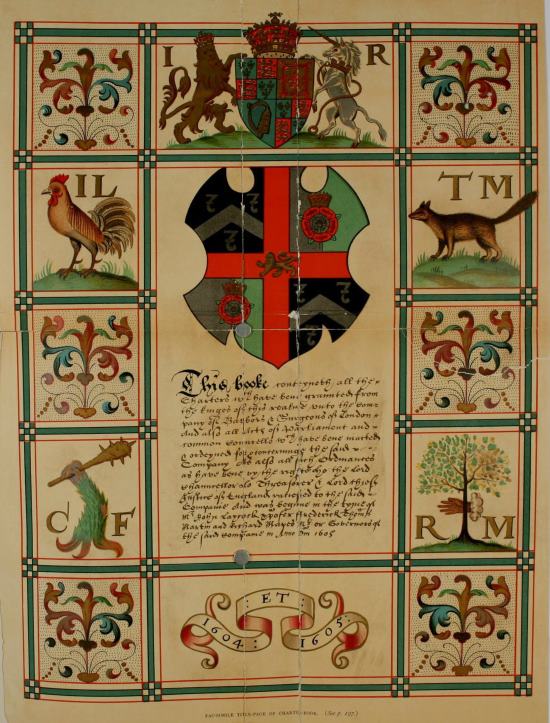 I R
IL
T M
This booke conteyneth all the
Charters wch have bene graunted from
the kinges of this realme unto the Com-
pany of Barbors & Surgeons of London
And also all Acts of Parliament and
common Councells wch have bene made
& ordeyned for concerninge the said
Company As also all such Ordinances
as have bene by the right ho: the Lord
Chauncellor Lo: Threasorer & Lord chief
Justice of England ratified to the saide
Companie And was begone in the tyme of
Mr John Laycock Frederick Thomas
Martin and Richard Mapes or Governors of
the said Companie in Anno Dni 1605
C F
R M
1604 : ET : 1605
FACSIMILE TITLE-PAGE OF CHARTER-BOOK. (See p. 197.)